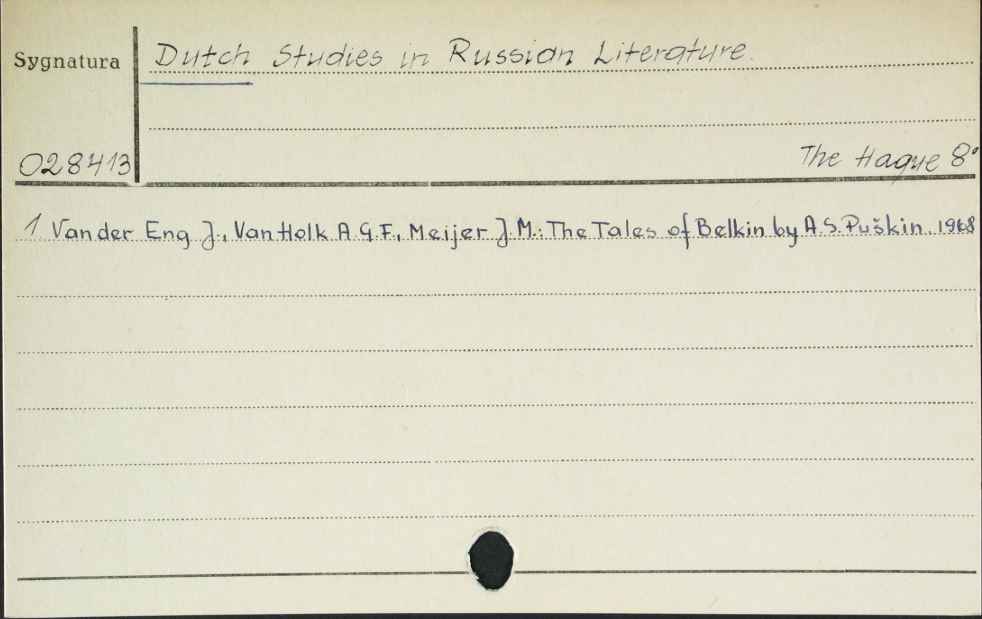 Sygnatura
Dutch Studies in Russian Literature.
028413
The Hague 8°
1 Van der Eng J., Van Holk A.G.F., Meijer J.M.: The Tales of Belkin by A.S. Puškin. 1968